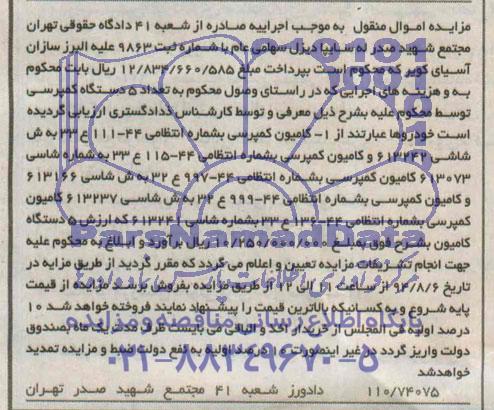 مزایده اموال منقول به موجب اجراییه صادره از شعبه ۴۱ دادگاه حقوقی تهران
مجتمع شهید صدر له سایپا دیزل سهامی عام با شماره ثبت ۹۸۶۳ علیه البرز سازان
آسیای کویر که محکوم است بپرداخت مبلغ ۱۲/۸۳۴/۶۶۰/۵۸۵ ریال بابت محکوم
به و هزینه های اجرایی که در راستای وصول محکوم به تعداد ۵ دستگاه کمپرسی
توسط محکوم علیه بشرح ذیل معرفی و توسط کارشناس دادگستری ارزیابی گردیده
است خودروها عبارتند از ۱- کامیون کمپرسی بشماره انتظامی ۴۴-۱۱۱ ع ۳۳ به ش
شاسی ۶۱۳۲۴۲ و کامیون کمپرسی بشماره انتظامی ۴۴-۱۱۵ ع ۳۳ به شماره شاسی
۶۱۳۰۷۳ کامیون کمپرسی بشماره انتظامی ۴۴-۹۹۷ ع ۳۲ به ش شاسی ۶۱۳۱۶۶
و کامیون کمپرسی بشماره انتظامی ۴۴-۹۹۹ ع ۳۲ به ش شاسی ۶۱۳۲۳۷ وکامیون
کمپرسی بشماره انتظامی ۴۴-۱۳۶ ع ۳۳ بشماره شاسی که ارزش ۵ دستگاه
کامیون بشرح فوق بمبلغ ۱۰/۲۵۰/۰۰۰/۰۰۰ ریال برآورد و ابلاغ به محکوم علیه
جهت انجام تشریفات مزایده تعیین و اعلام می گردد که مقرر گردید از طریق مزایده در
تاریخ ۹۴/۸/۶ از ساعت ۱۱ الی ۱۲ از طریق مزایده بفروش برسد مزایده از قیمت
پایه شروع و به کسانیکه بالاترین قیمت را پیشنهاد نمایند فروخته خواهد شد ۱۰
درصد اولیه فی المجلس از خریدار اخذ و الباقی می بایست ظرف مدت یک ماه بصندوق
دولت واریز گردد در غیر اینصورت ۱۰ درصد اولیه به نفع دولت ضبط و مزایده تمدید
خواهد شد
۱۱۰/۷۴۰۷۵ دادورز شعبه ۴۱ مجتمع شهید صدر تهران
ParsNamadData
پایگاه اطلاع رسانی مناقصه و مزایده
۰۲۱-۸۸۳۴۹۶۷۰-۵